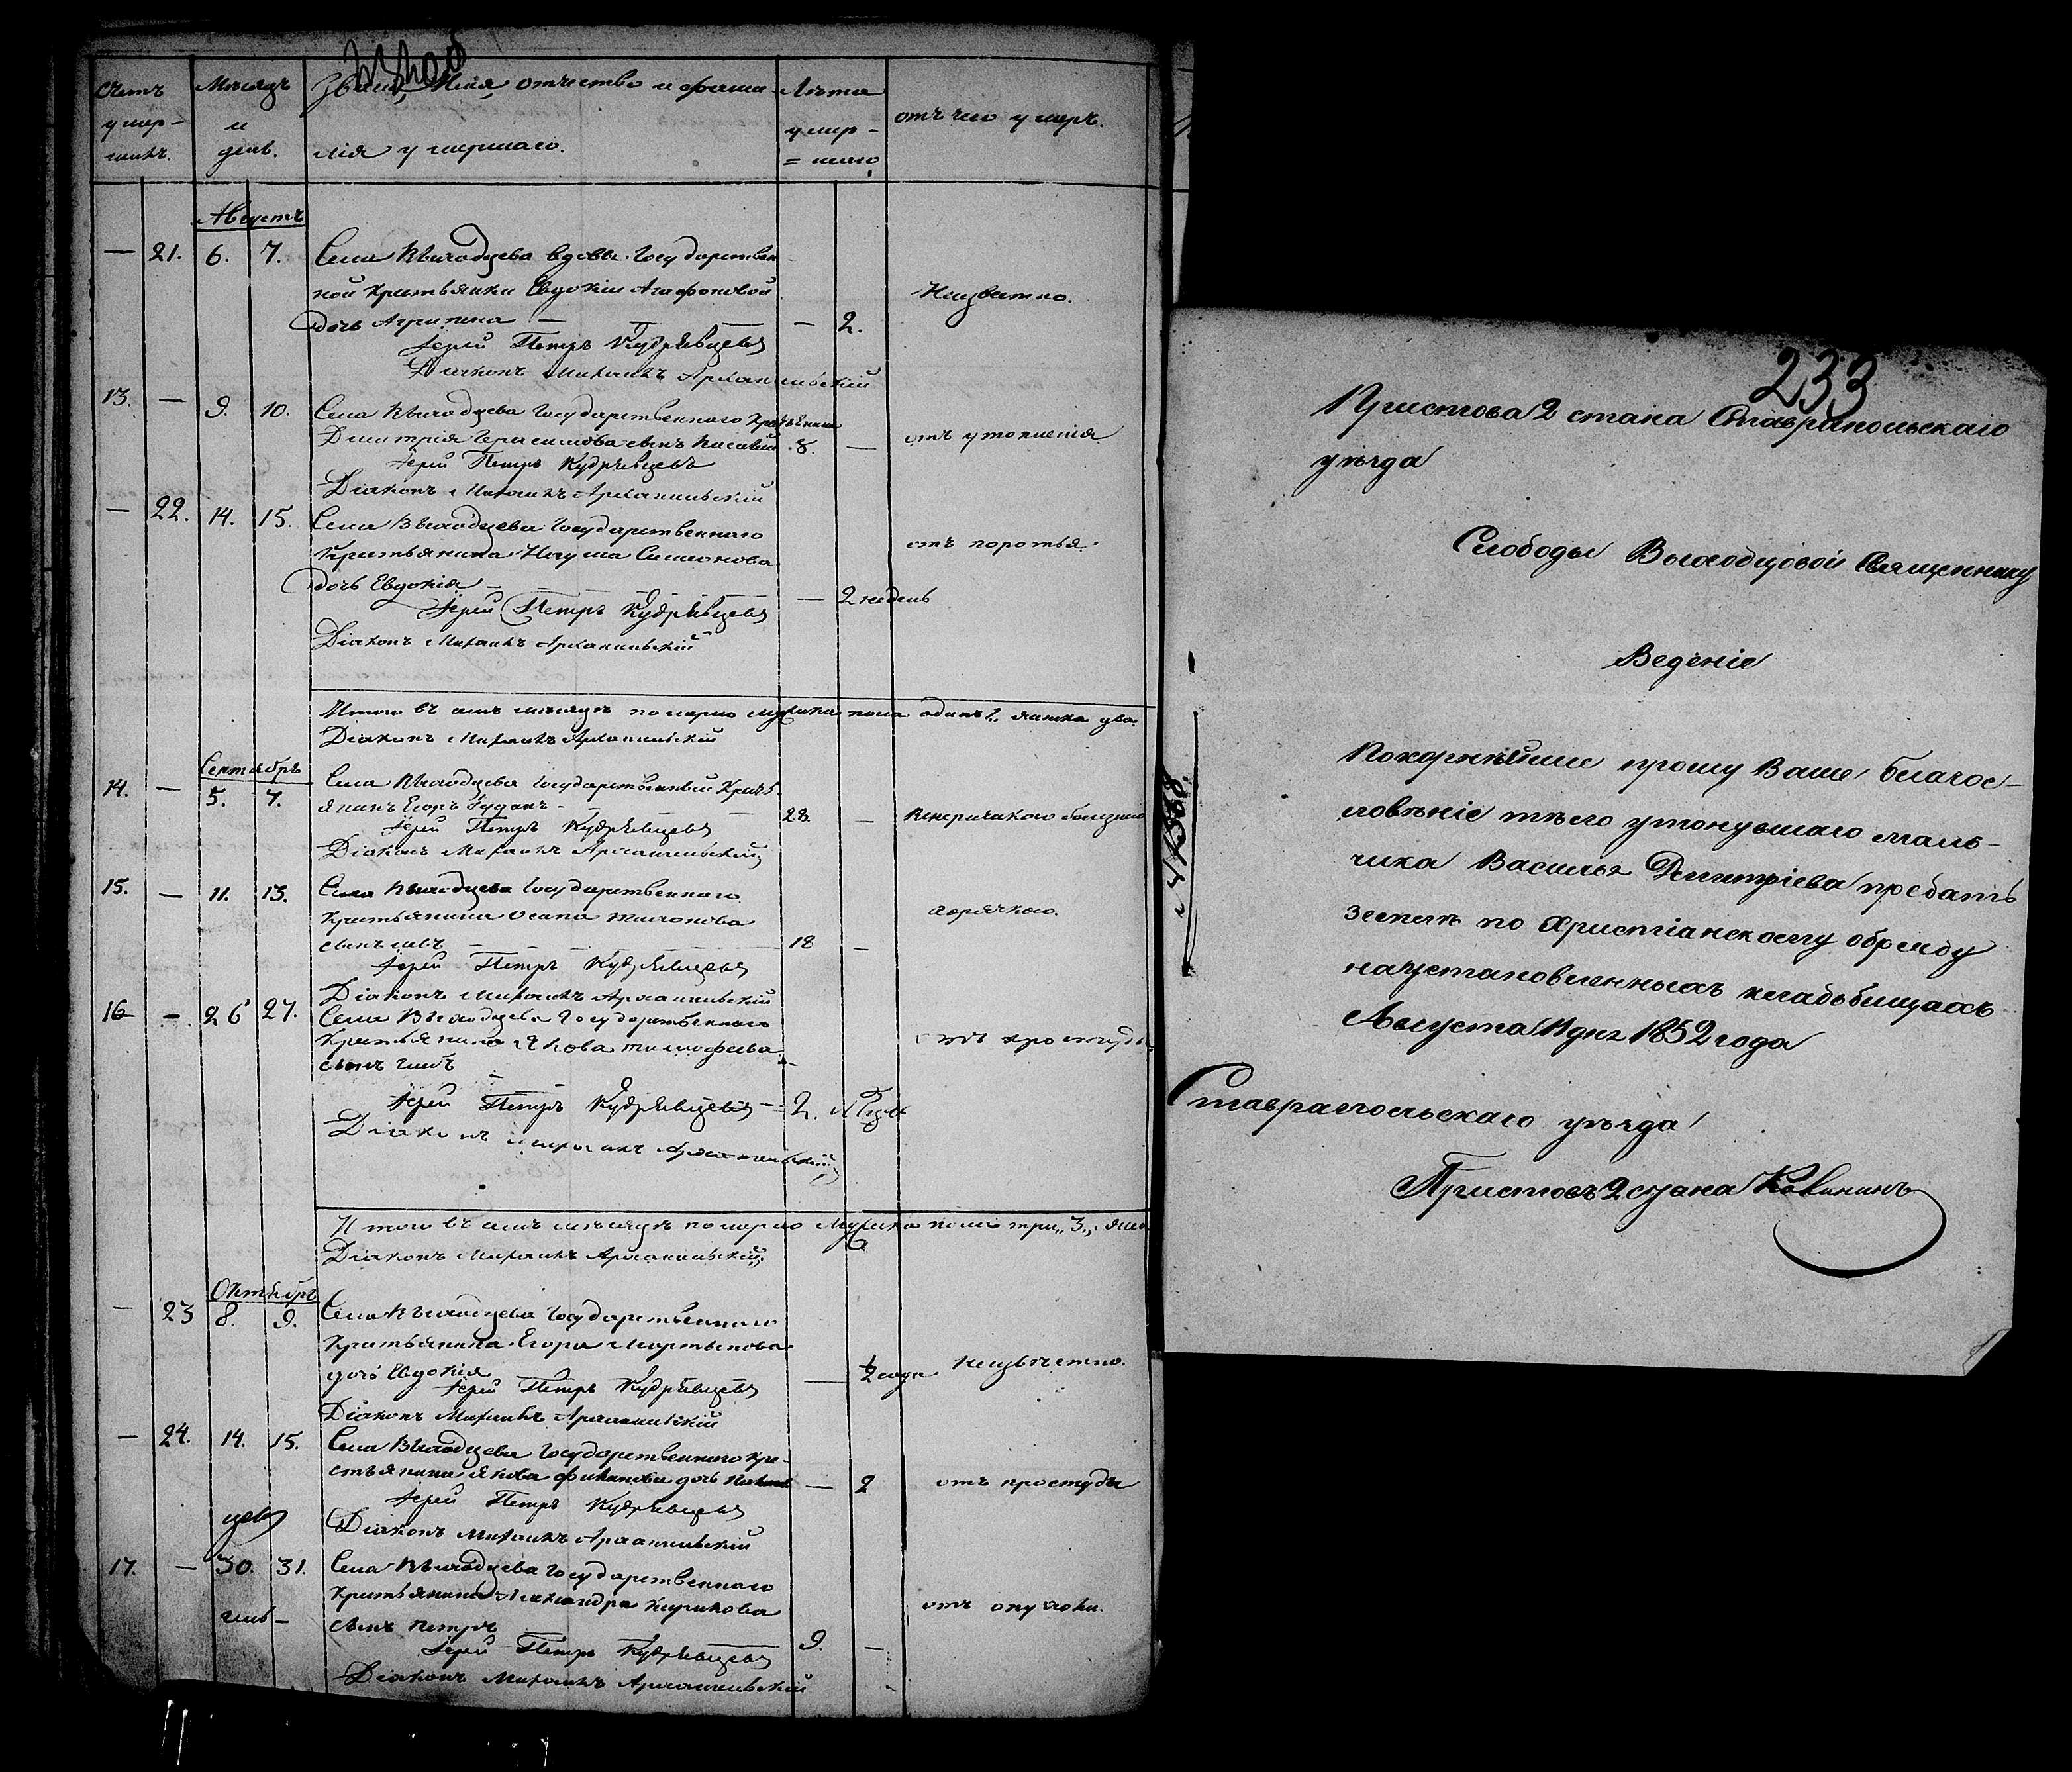 Счетъ умер-шихъ.
Мѣсяцъ и день.
Званіе, Имя, отчество и фами-
лія умершаго.
Лѣта умер-
= шаго
отъ чего умеръ.
Августъ
— 21. 6. 7. Села Выходцева вдовы Государствен
ной крестьянки Евдокіи Агафоновой Неизвестно.
дочь Агрипена — — 2.
Іерей Петръ Кудрявцевъ
Діаконъ Михаилъ Архангельскій
13. — 9. 10. Села Выходцева Государственного крестьянина
Дмитрія Герасимова сынъ Василій 8. — отъ утопленія
Іерей Петръ Кудрявцевъ
Діаконъ Михаилъ Архангельскій
— 22. 14. 15. Села Выходцева Государственного
Крестьянина Наума Симонова отъ поротья.
дочь Евдокія — — 2 недель
Іерей Петръ Кудрявцевъ
Діаконъ Михаилъ Архангельскій
Итого въ семъ мѣсяцѣ померло мужска пола одинъ 1. женска два.
Діаконъ Михаилъ Архангельскій
Сентябрь
14. — 5. 7. Села Выходцева Государственный Кресть
янинъ Егоръ — 28. —
Іерей Петръ Кудрявцевъ
Діаконъ Михаилъ Архангельскій
15. — 11. 13. Села Выходцева Государственного
Крестьянина Осипа Тихонова горячкою.
сынъ — 18 —
Іерей Петръ Кудрявцевъ
Діаконъ Михаилъ Архангельскій
16 — 26 27. Села Выходцева Государственного
Крестьянина Якова Тимофеева отъ простуды
сынъ Глебъ —
Іерей Петръ Кудрявцевъ — 2.
Діаконъ Михаилъ Архангельскій
Итого въ семъ мѣсяцѣ померло Мужска пола три „3„
Діаконъ Михаилъ Архангельскій
Октябрь
— 23 8. 9. Села Выходцева Государственного
Крестьянина Егора Мартынова
дочь Евдокія — ½ года Неизвѣстно.
Іерей Петръ Кудрявцевъ
Діаконъ Михаилъ Архангельскій
— 24. 14. 15. Села Выходцева Государственного кре-
стьянина Якова дочь — 2 отъ простуды
Іерей Петръ Кудрявцевъ
Діаконъ Михаилъ Архангельскій
17. — 30. 31. Села Выходцева Государственного
Крестьянина Александра Кирикова отъ опухоли.
сынъ Петръ 9. —
Іерей Петръ Кудрявцевъ
Діаконъ Михаилъ Архангельскій
233
Пристова 2 стана Ставрапольскаго
уѣзда
Слободы Выходцовой Священнику
Ведение
Покорнѣйше прошу Ваше благос-
ловѣніе тѣло утонувшаго маль-
чика Василья Дмитріева предать
земле по Христіанскому обряду
на установленныхъ кладьбищахъ
Августа 11 дня 1852 года
Ставрапольскаго уѣзда
Приставъ 2 стана